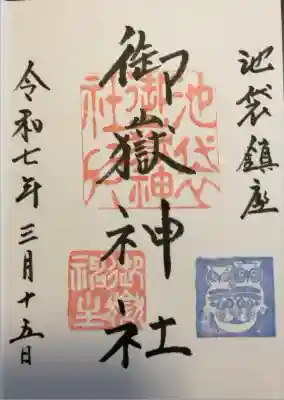 池袋鎮座
御嶽神社
令和七年三月十五日
池袋
御嶽神
社印